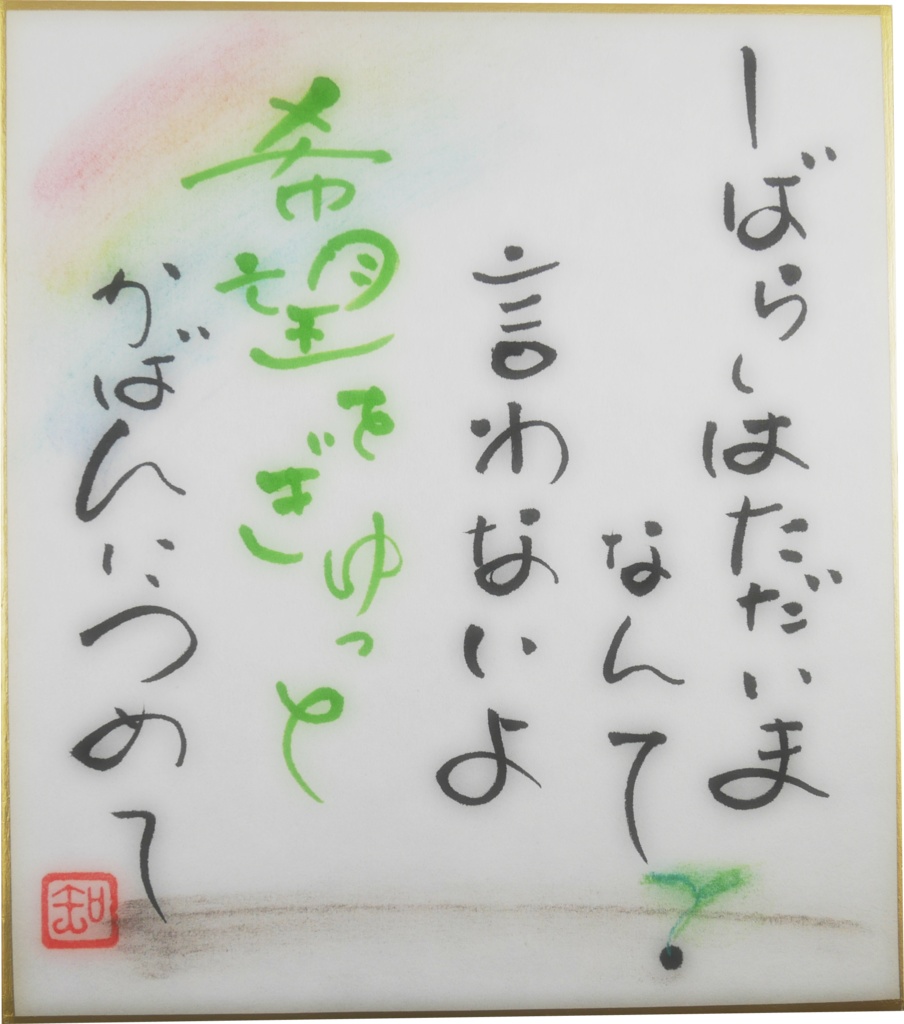 しばらくはただいま
なんて
言わないよ
希望をぎゅっと
かばんにつめて
知